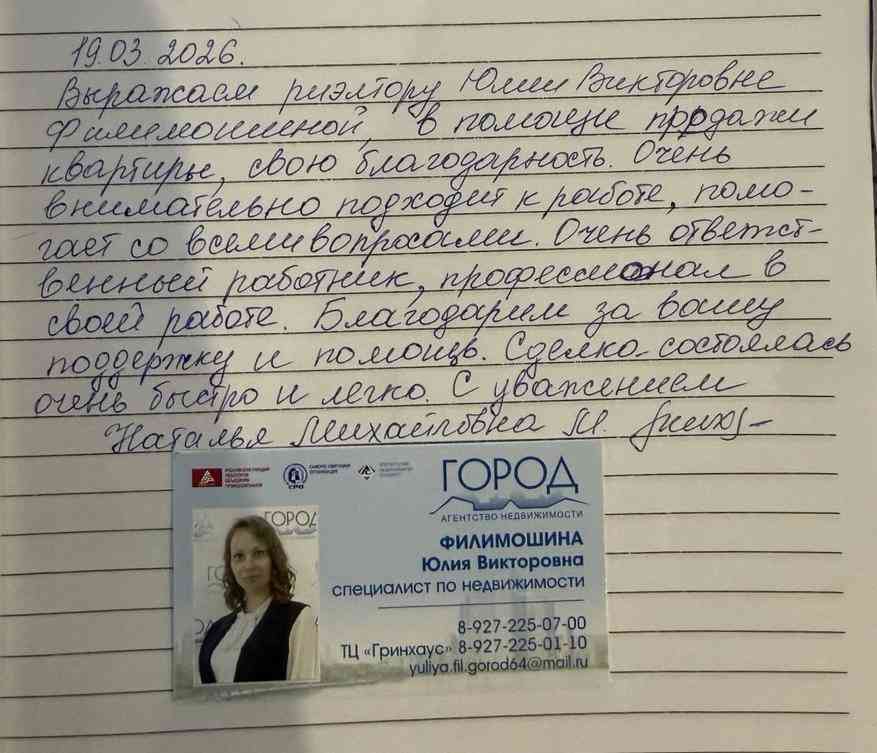 19.03.2026.
Выражаем риэлтору Юлии Викторовне
Филимошиной, в помощи продажи
квартиры, свою благодарность. Очень
внимательно подходит к работе, помо-
гает со всеми вопросами. Очень ответст-
венный работник, профессионал в
своей работе. Благодарим за вашу
поддержку и помощь. Сделка состоялась
очень быстро и легко. С уважением
Наталья Михайловна М.
СРО
ГОРОД
АГЕНТСТВО НЕДВИЖИМОСТИ
ФИЛИМОШИНА
Юлия Викторовна
специалист по недвижимости
8-927-225-07-00
ТЦ «Гринхаус» 8-927-225-01-10
yuliya.fil.gorod64@mail.ru
ГОРОД